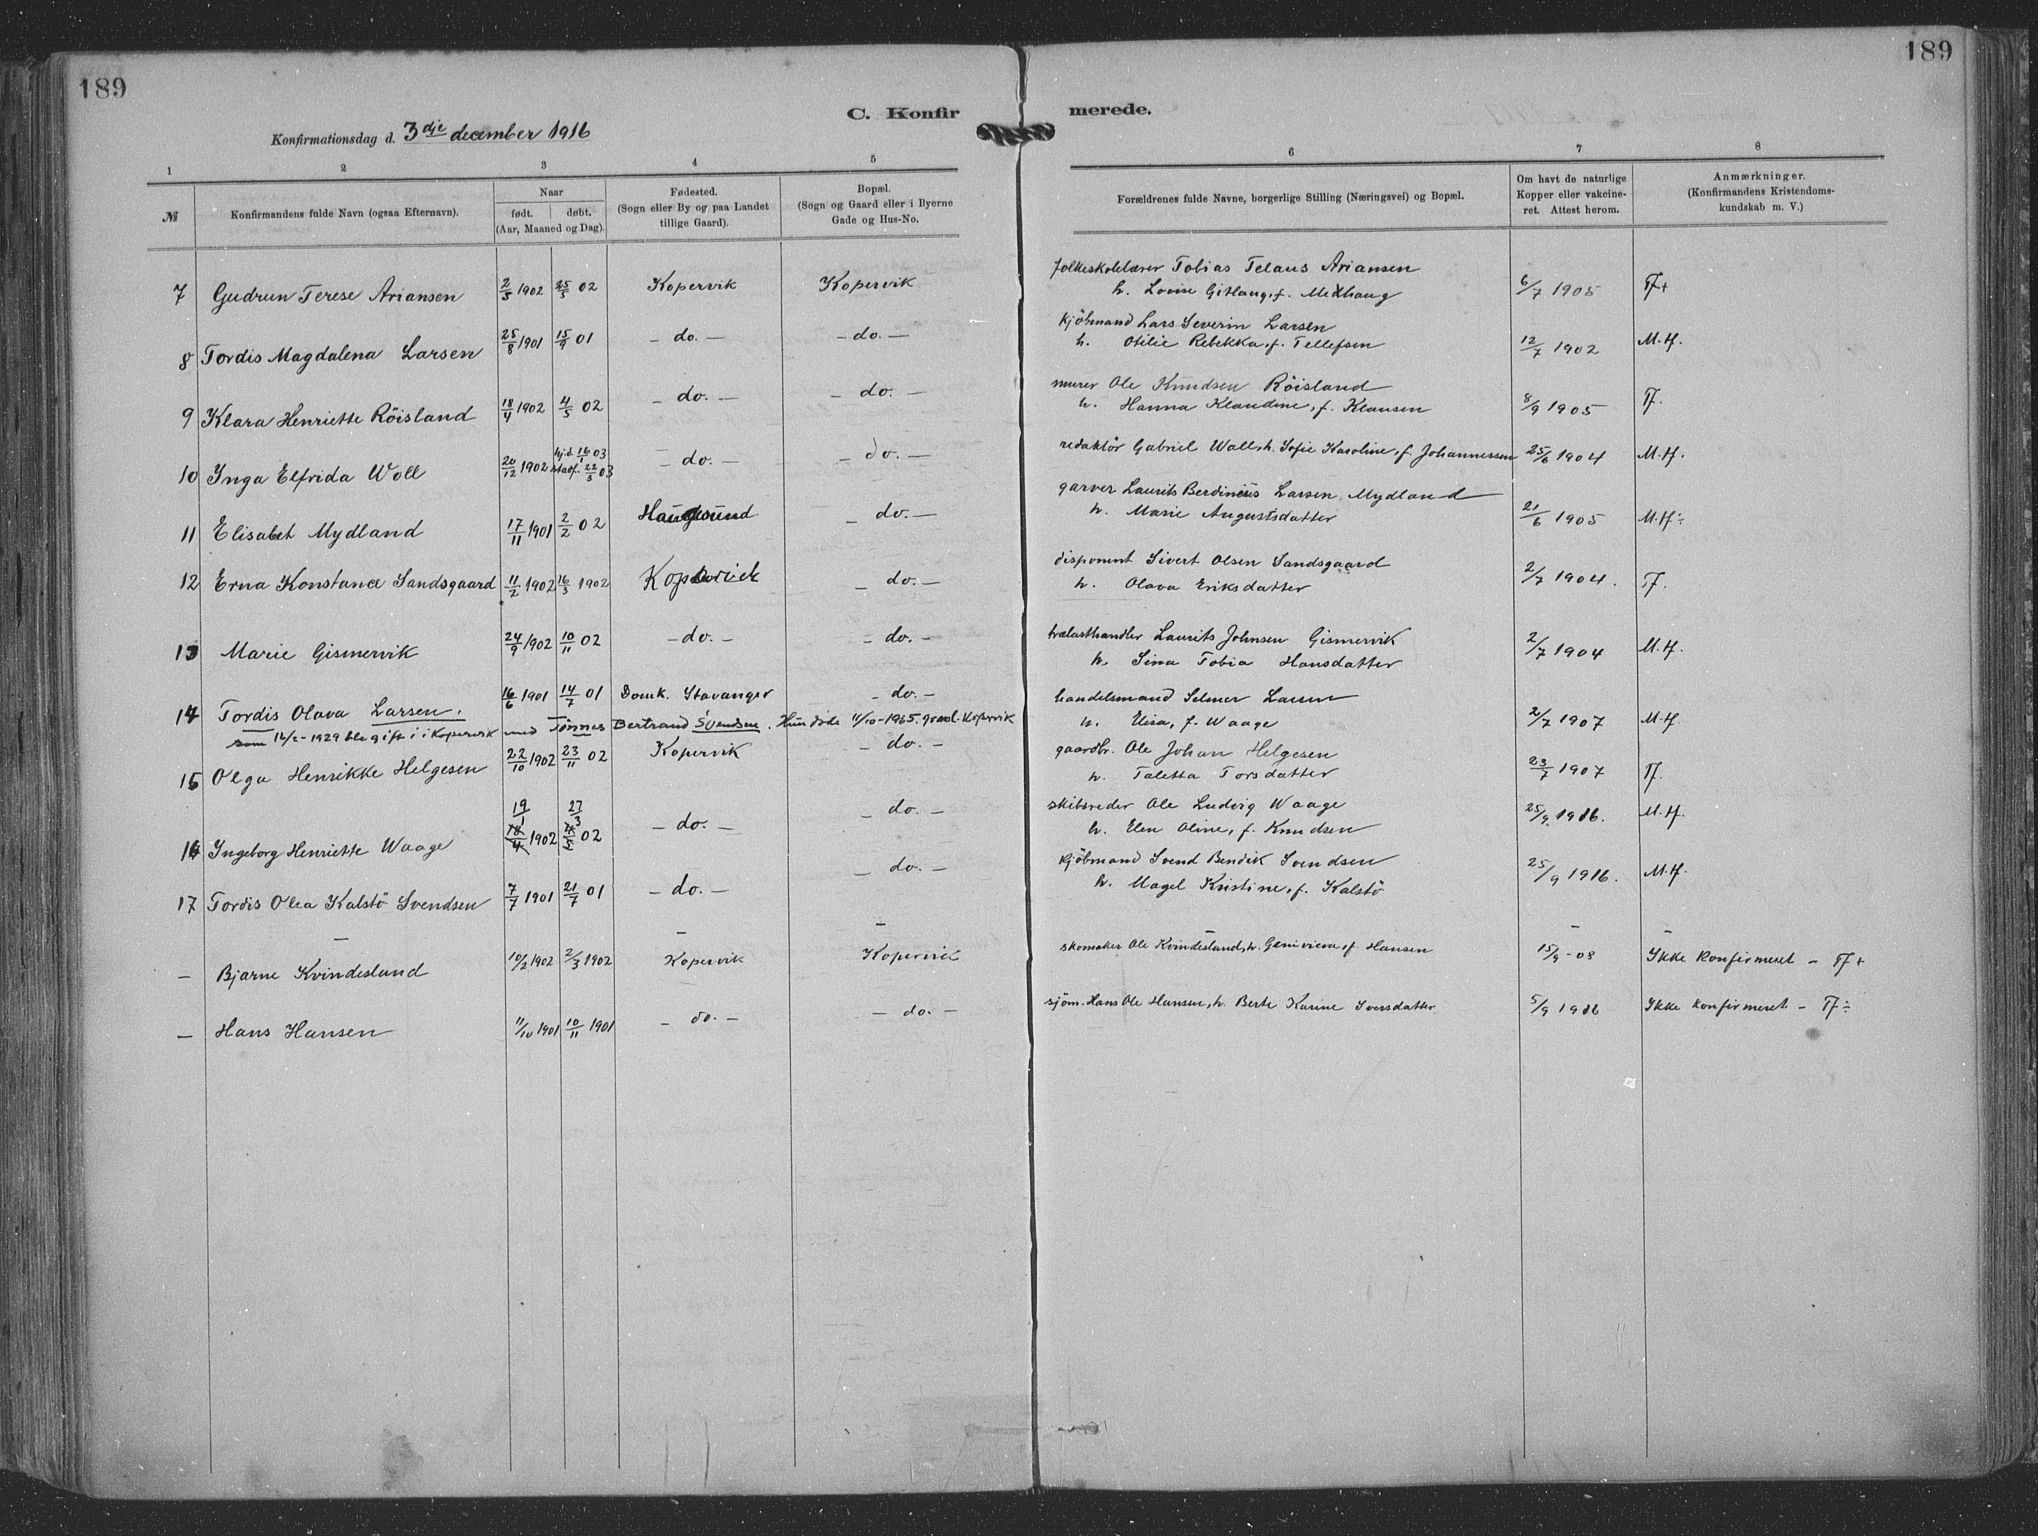 189
189
C. Konfir
merede.
Konfirmationsdag d. 3dje december 1916
1 2 3 4 5 6 7 8
№ Konfirmandens fulde Navn (ogsaa Efternavn).
Naar
født. døbt.
(Aar, Maaned og Dag).
Fødested.
(Sogn eller By og paa Landet
tillige Gaard).
Bopæl.
(Sogn og Gaard eller i Byerne
Gade og Hus-No.
Forældrenes fulde Navne, borgerlige Stilling (Næringsvei) og Bopæl.
Om havt de naturlige
Kopper eller vakcine-
ret. Attest herom.
Anmærkninger.
(Konfirmandens Kristendoms-
kundskab m. V.)
7 Gudrun Terese Ariansen 2/5 1902 25/5 02 Kopervik Kopervik folkeskolelærer Tobias Telaus Ariansen 6/7 1905 Tf+
h. Lovise Gitlaug, f. Medhaug
8 Tordis Magdalena Larsen 25/8 1901 15/9 01 - do. - - do. - kjöbmand Lars Severin Larsen 12/7 1902 M.tf.
h. Otilie Rebekka, f. Tellefsen
9 Klara Henriette Röisland 18/4 1902 4/5 02 - do. - - do. - murer Ole Knudsen Röisland 8/9 1905 Tf.
h. Hanna Klaudine, f. Klausen
10 Ynga Elfrida Woll 20/12 1902 hjd. 16/1 03 stadf. 22/5 03 - do. - - do. - redaktör Gabriel Wall, h. Sofie Karoline, f. Johannessen 25/6 1904 M.tf.
11 Elisabet Mydland 17/11 1901 2/2 02 Haugesund - do. - garver Laurits Berdinius Larsen Mydland 21/6 1905 M.tf÷
h. Marie Augustsdatter
12 Erna Konstanse Sandsgaard 11/2 1902 16/3 1902 Kopervik - do. - disponent Sivert Olsen Sandsgaard 2/7 1904. Tf.
h. Olava Eriksdatter
13 Marie Gismervik 24/9 1902 10/11 02 - do. - - do. - trælasthandler Laurits Johnsen Gismervik 2/7 1904 M.tf.
h. Sina Tobia Hansdatter
14 Tordis Olava Larsen. 16/6 1901 14/7 01 Domk. Stavanger - do. - handelsmand Selmer Larsen 2/7 1907 M.tf.
h. Elisa, f. Waage
som 16/2-1929 ble gift i Kopervik med Tönnes Bertrand Svendsen. Hun döde 11/10-1965. gravl. Kopervik
15 Olga Henrikke Helgesen 22/10 1902 23/11 02 Kopervik - do. - gaardbr. Ole Johan Helgesen 23/7 1907 Tf.
h. Taletta Torsdatter
16 Yngeborg Henriette Waage 19/1 18/4 1902 27/3 4/5 02 - do. - - do. - skibsreder Ole Ludvig Waage 25/9 1916. M.tf.
h. Elen Oline, f. Knudsen
17 Tordis Olea Kalstö Svendsen 7/7 1901 21/7 01 - do. - - do. - kjöbmand Svend Bendik Svendsen 25/9 1916. M.tf.
h. Magel Kristine, f. Kalstö
- Bjarne Kvindesland 10/2 1902 2/3 1902 Kopervik Kopervik skomaker Ole Kvindesland, h. Genivieva, f. Hansen 15/9-08 Ikke konfirmeret - Tf+
- Hans Hansen 11/10 1901 10/11 1901 - do. - - do. - sjöm. Hans Ole Hansen, h. Berte Karine Iversdatter 5/9 1916 Ikke konfirmeret - Tf÷